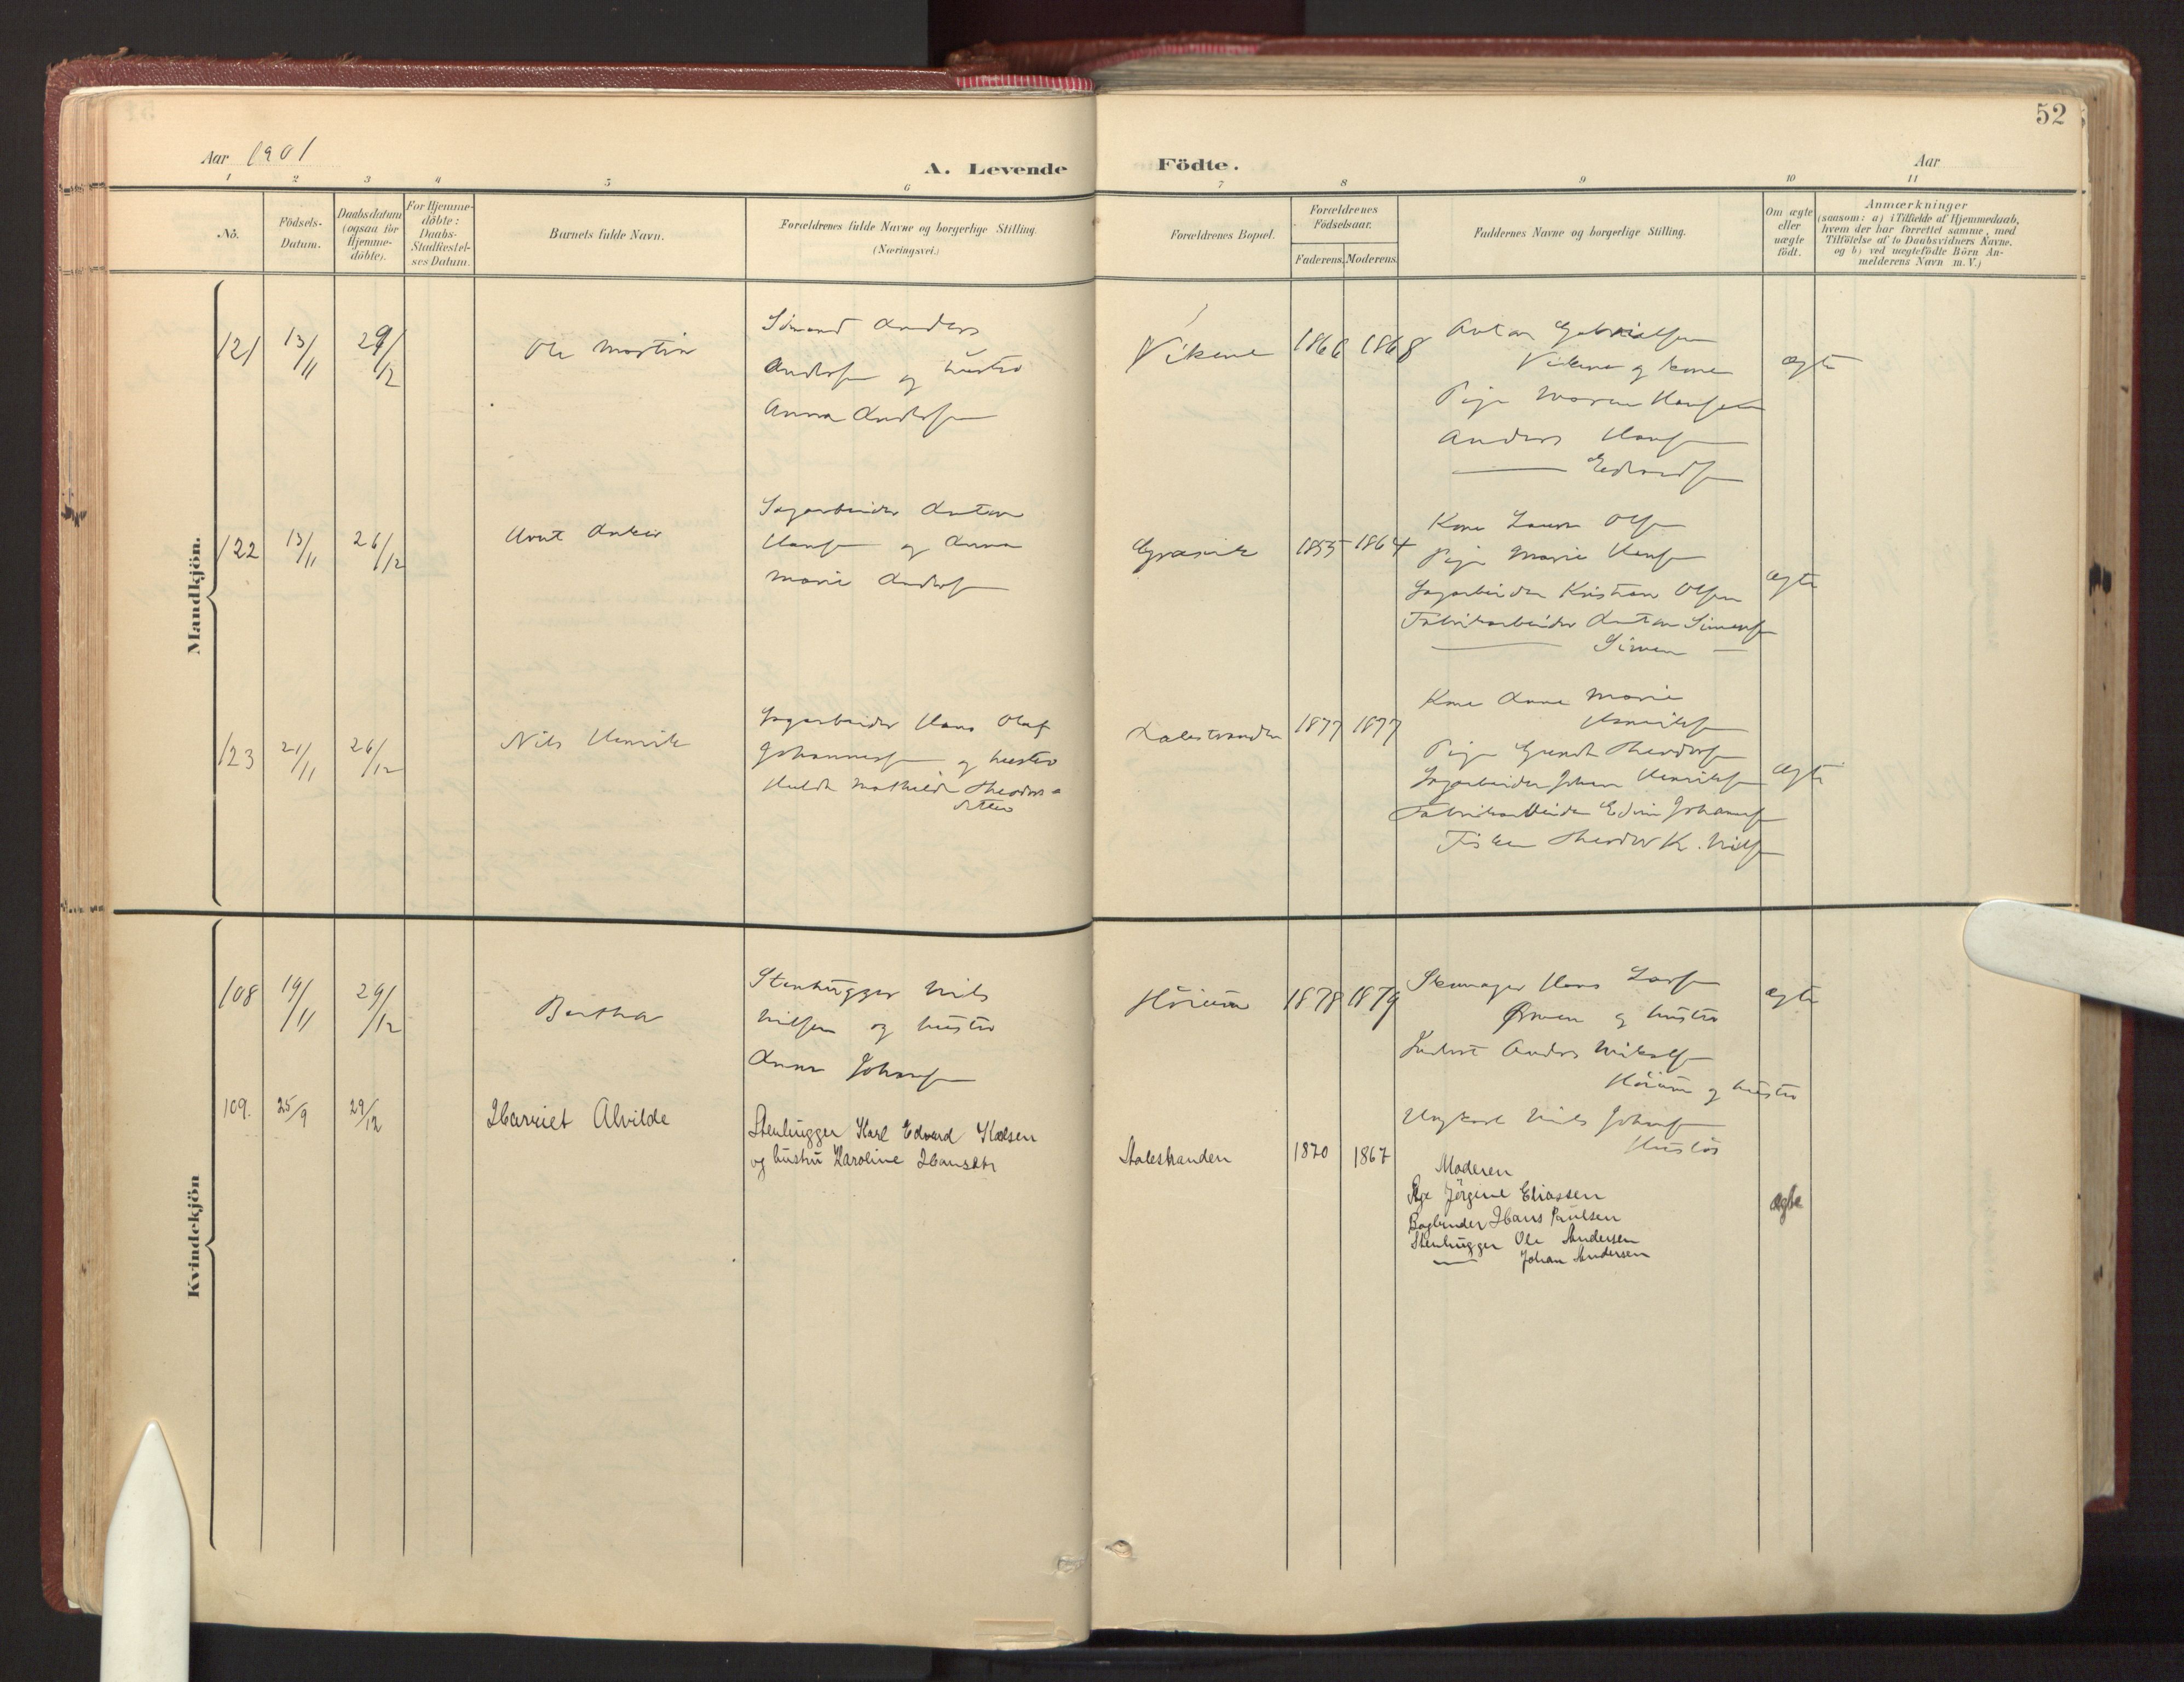 52
Aar 1901
A. Levende Födte.
Aar
1 2 3 4 5 6 7 8 9 10 11
No.
Födsels-
Datum.
Daabsdatum
(ogsaa for
Hjemme-
döbte).
For Hjemme-
döbte:
Daabs-
Stadfæstel-
ses Datum.
Barnets fulde Navn.
Forældrenes fulde Navne og borgerlige Stilling.
(Næringsvei.)
Forældrenes Bopæl.
Forældrenes
Födselsaar.
Faderens. Moderens.
Faddernes Navne og borgerlige Stilling.
Om ægte
eller
uægte
födt.
Anmærkninger
(saasom: a) i Tilfælde af Hjemmedaab,
hvem der har forrettet samme, med
Tilföielse af to Daabsvidners Navne.
og b) ved uægtefödte Börn An-
melderens Navn m. V.)
Mandkjön.
121 13/11 29/12 Ole Martin
Anders
Andersen og hustro
Anna Andersen
Vikene 1866 1868
Anton Gabrielsen
Vikene og kone
Pige Maren Hansen
Anders Hansen
— Edvardsen
ægte
122 13/11 26/12 Arnt Anker
Sagarbeider Anton
Hansen og Anna
Marie Andersen
Græsvik 1855 1864
Kone Laura Olsen
Pige Marie Hansen
Sagarbeider Kristian Olsen
Fabrikarbeider Anton Simensen
— Simen —
ægte
123 21/11 26/12 Nils Henrik
Sagarbeider Hans Olaf
Johannessen og hustro
Hulda Mathilde Theodors-
datter
Lalestranden 1877 1877
Kone Anne Marie
Henriksen
Pige Theodorsen
Sagarbeider Johan Henriksen
Fabrikarbeider Edvin Johansen
Fisker Theodor K. Nilsen
ægte
Kvindekjön
108 19/11 29/12 Bertha
Stenhugger Nils
Nilsen og hustro
Anna Johansen
1878 1879
Hans Larsen
og hustro
Anders Mikalsen
og hustro
Ungkarl Nils Johansen
ægte
109. 25/9 29/12 Harriet Alvilde
Stenhugger Karl Edvard Karlsen
og hustru Karoline Hansdtr
Stalestranden 1870 1867
Moderen
Pige Jörgine Eliassen
Bogbinder Hans Paulsen
Stenhugger Ole Andersen
— Johan Andersen
ægte